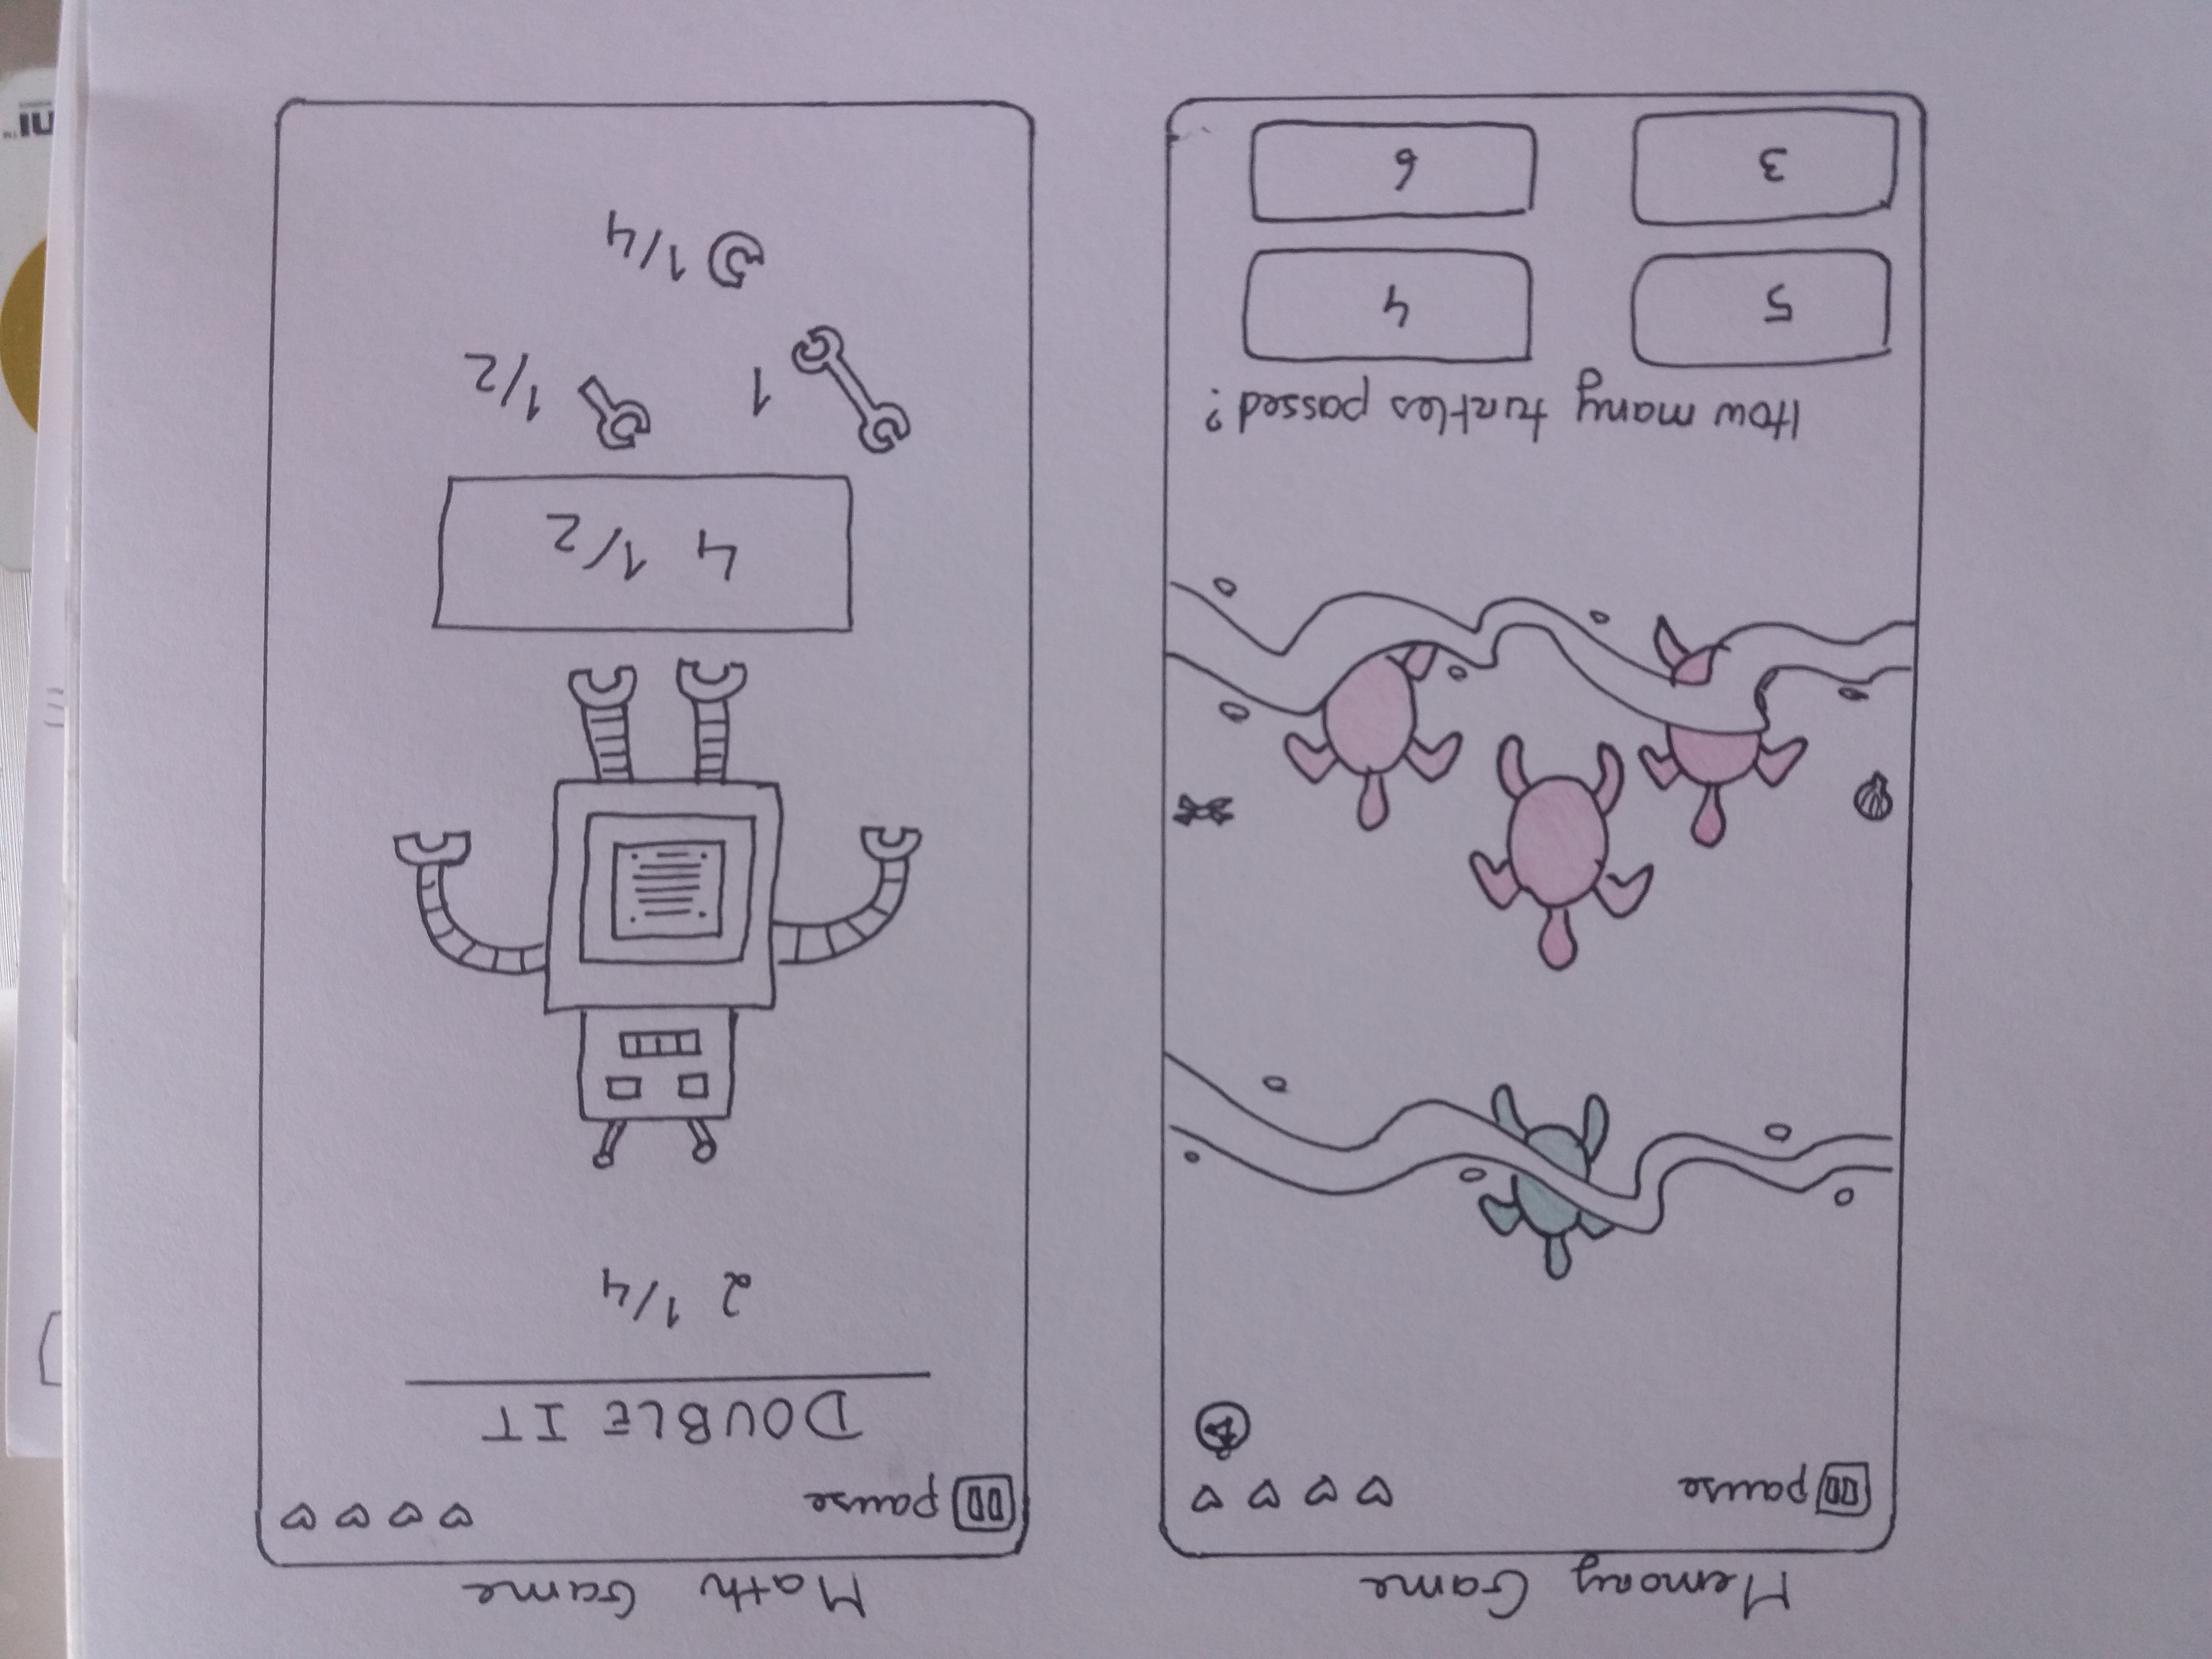 Memory Game
pause
How many turtles passed?
5 4
3 6
Math Game
pause
DOUBLE IT
2 1/4
4 1/2
1 1/2
1/4